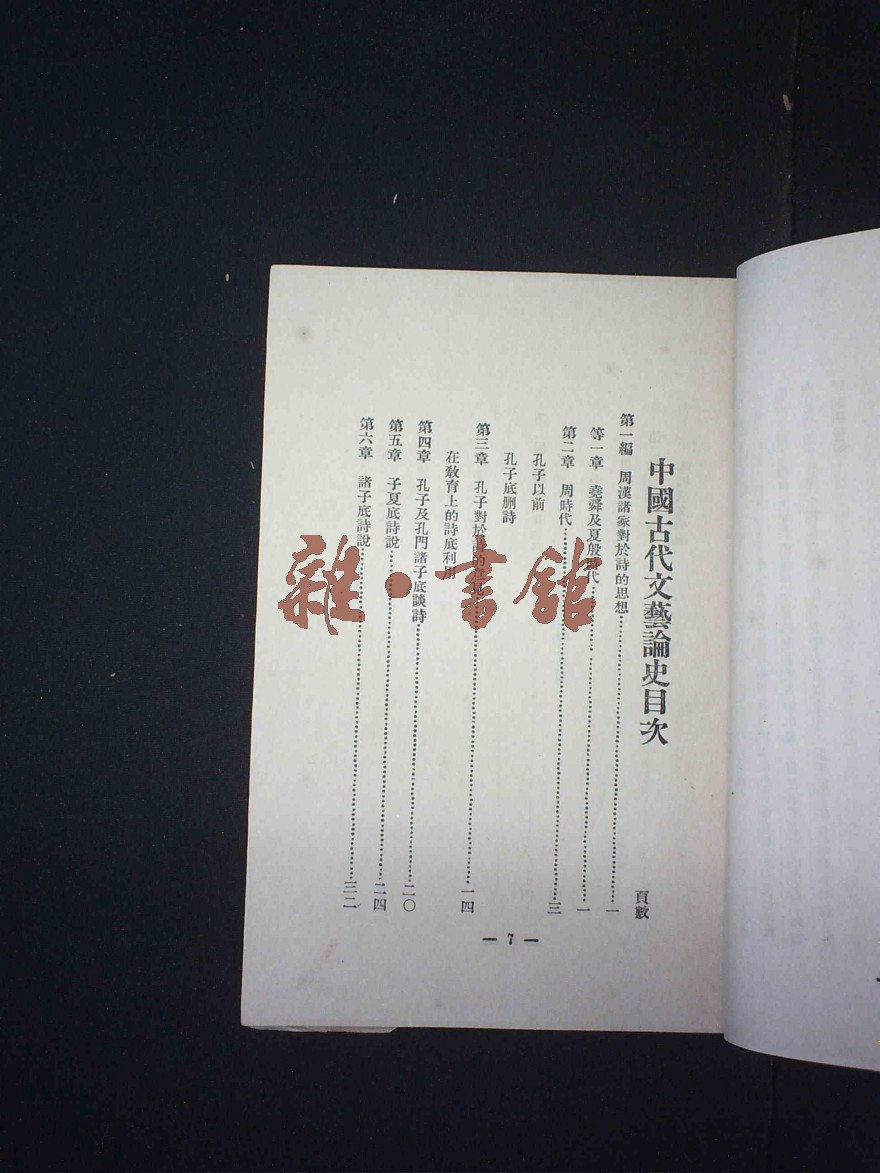 中國古代文藝論史目次
頁數
第一編　周漢諸家對於詩的思想……一
等一章　堯舜及夏殷時代……一
第二章　周時代……三
孔子以前
孔子底刪詩
第三章　孔子對於詩的意見……一四
在敎育上的詩底利用
第四章　孔子及孔門諸子底談詩……二〇
第五章　子夏底詩說……二四
第六章　諸子底詩說……三二
— 7 —
雜·書館